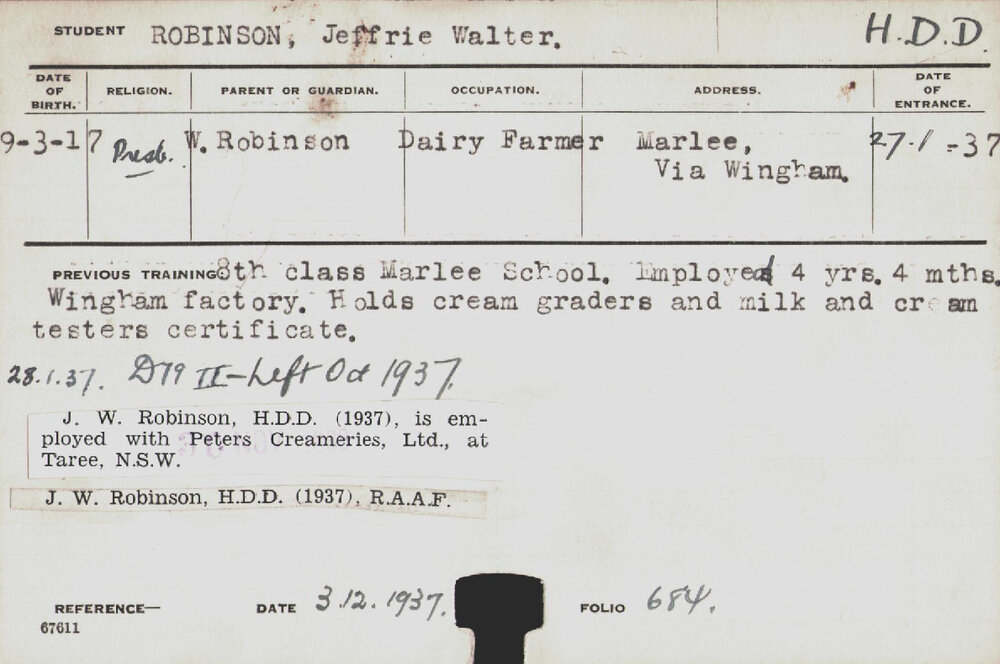 STUDENT ROBINSON, Jeffrie Walter. H.D.D.
DATE OF BIRTH. RELIGION. PARENT OR GUARDIAN. OCCUPATION. ADDRESS. DATE OF ENTRANCE.
9-3-17 Presb. W. Robinson Dairy Farmer Marlee, 27.1-37
Via Wingham.
PREVIOUS TRAINING 8th class Marlee School. Employed 4 yrs. 4 mths.
Wingham factory. Holds cream graders and milk and cream
testers certificate.
28.1.37. D79 II - Left Oct 1937.
J. W. Robinson, H.D.D. (1937), is em-
ployed with Peters Creameries, Ltd., at
Taree, N.S.W.
J. W. Robinson, H.D.D. (1937), R.A.A.F.
REFERENCE— DATE 3.12.1937. FOLIO 684.
67611